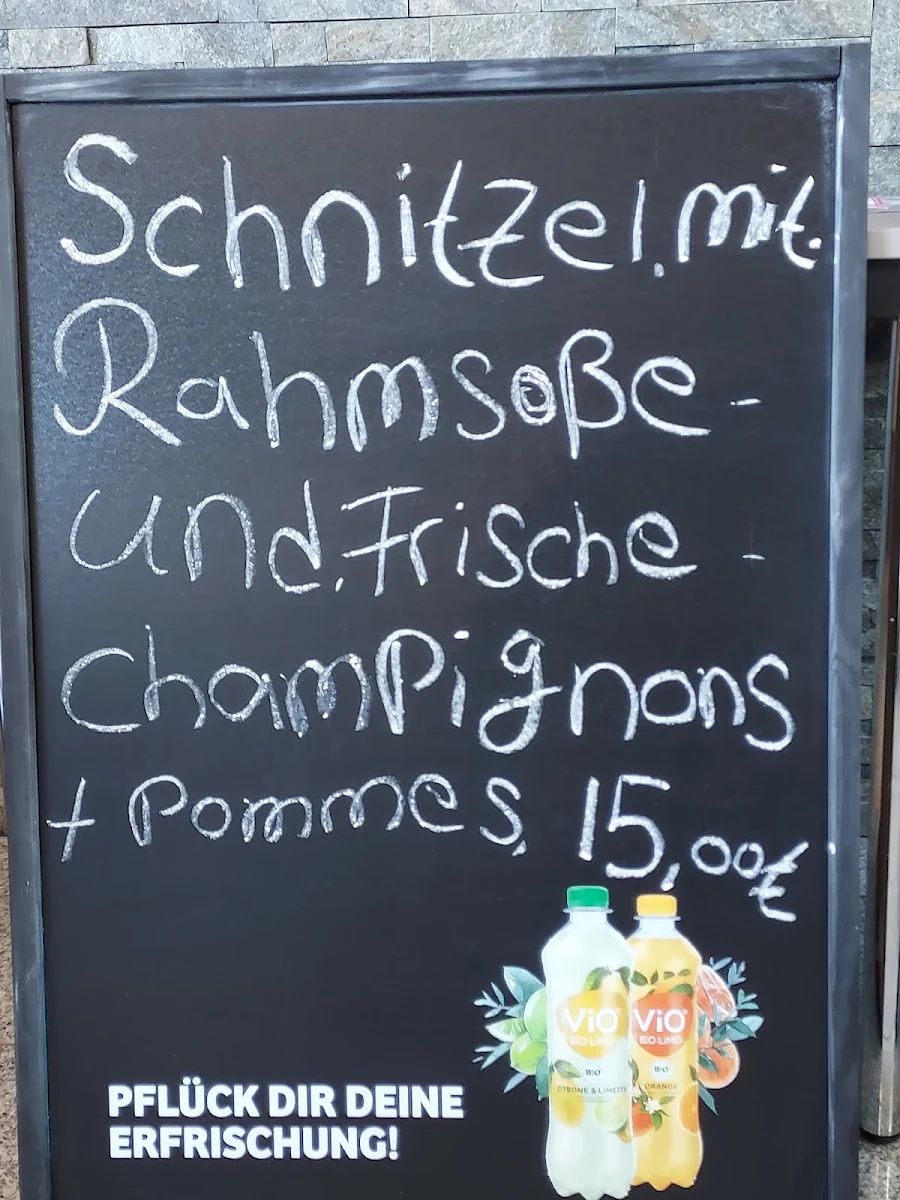 Schnitzel. mit.
Rahmsoße -
und. Frische -
Champignons
+ Pommes, 15,00€
ViO BIO LIMO BIO ZITRONE & LIMETTE
ViO BIO LIMO BIO ORANGE
PFLÜCK DIR DEINE
ERFRISCHUNG!